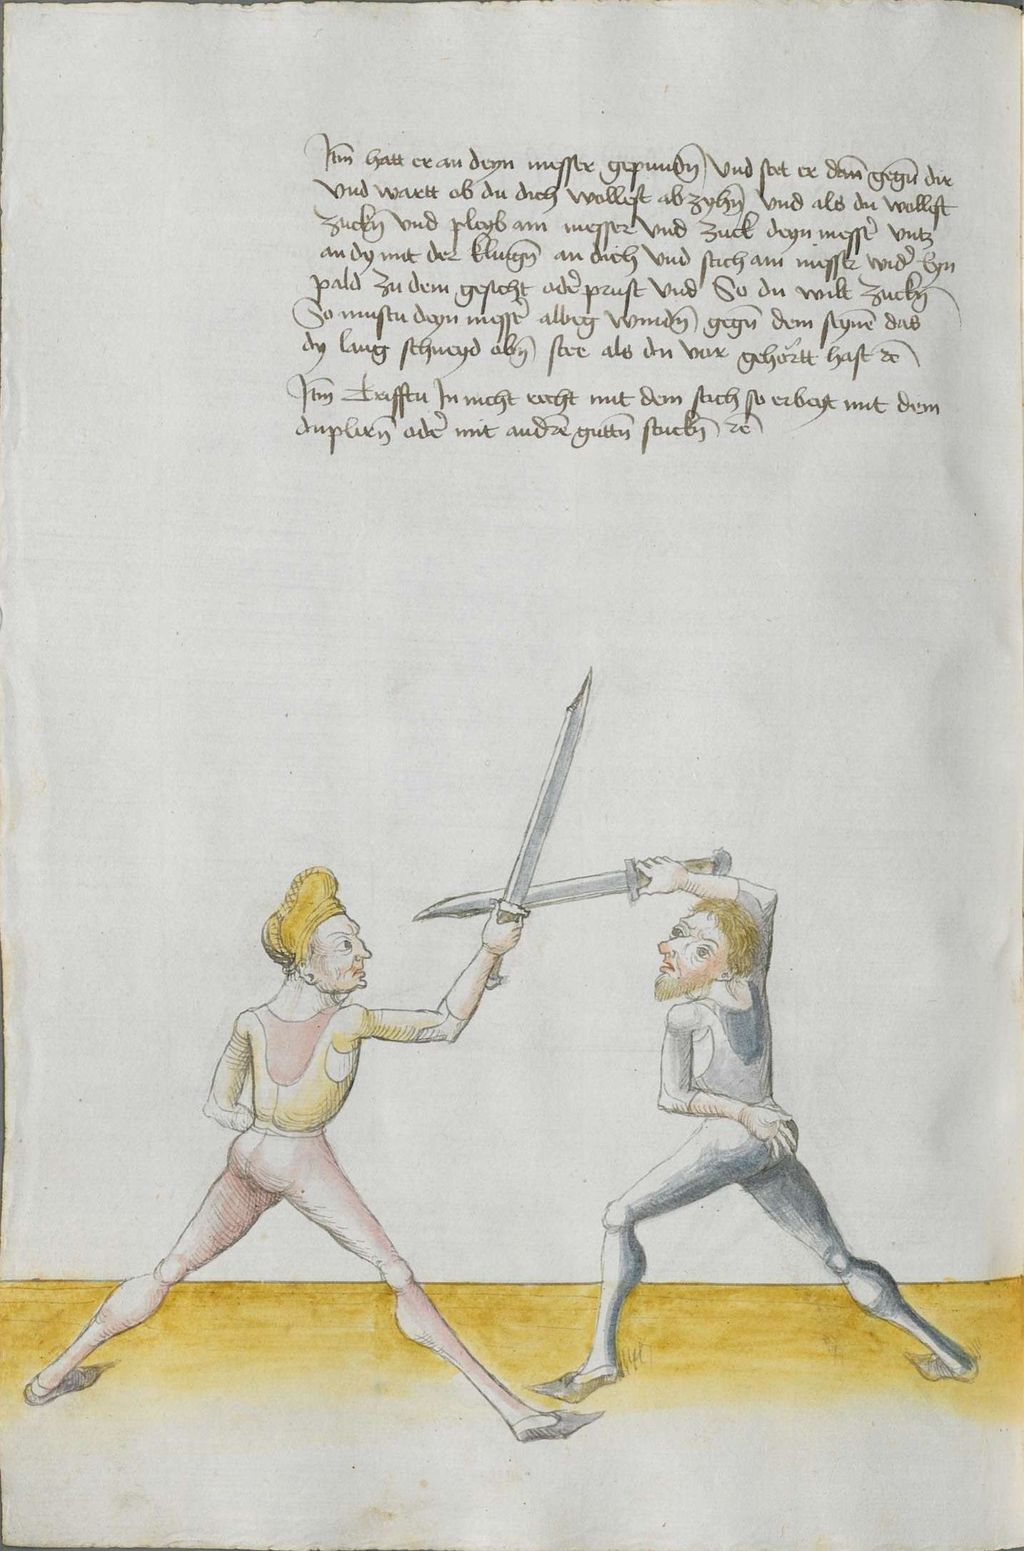 Itm̄ hatt er an deyn messer gepundn̄ vnd stet er dan̄ gegn̄ dir
vnd wartt ob du dich wollest ab zyhn̄ vnd als du wollest
zuckn̄ vnd pleyb am messer vnd zuck deyn messer̄ vntz
an dy mit der klingn̄ an dich vnd stich am messer wider̄ hyn
pald zu dem gesicht oder̄ prust vnd So du wilt zuckn̄
So mustu deyn messer̄ albeg windn̄ gegn̄ dem seynē das
dy lang schneyd obn̄ stee als du vor gehortt hast rc̄
Itm̄ Trifftu In nicht recht mit dem stich so erbeyt mit dem
duplirn̄ oder̄ mit andrē guttn̄ stuckn̄ rc̄